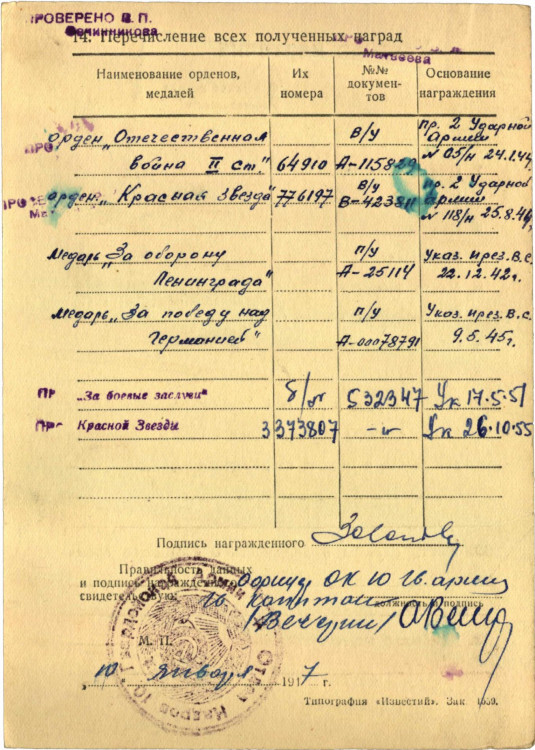 ПРОВЕРЕНО В. П.
Овчинникова
14. Перечисление всех полученных наград
Матвеева
Наименование орденов, медалей
Их номера
№№ документов
Основание награждения
орден „Отечественная
война II ст."
64910
в/у
А-115829
Пр. 2 Ударной
армии
№ 05/н 24.1.44
орден „Красная Звезда"
776197
в/у
В-423811
пр. 2 Ударной
армии
№ 118/н 25.8.44
медаль „За оборону
Ленинграда"
п/у
А-25114
Указ. през. В.С.
22.12.42г.
медаль „За победу над
Германией"
п/у
А-00078791
Указ. през. В.С.
9.5.45г.
„За боевые заслуги"
б/н
532347
Ук 17.5.51
Красной Звезды
3373807
-"-
Ук 26.10.55
Подпись награжденного
Правильность данных
и подпись награжденного
свидетельствую:
ОК 10 гв. армии
гв. капитан
должность и подпись
М. П.
10 января 1947 г.
Типография «Известий». Зак. 1659.